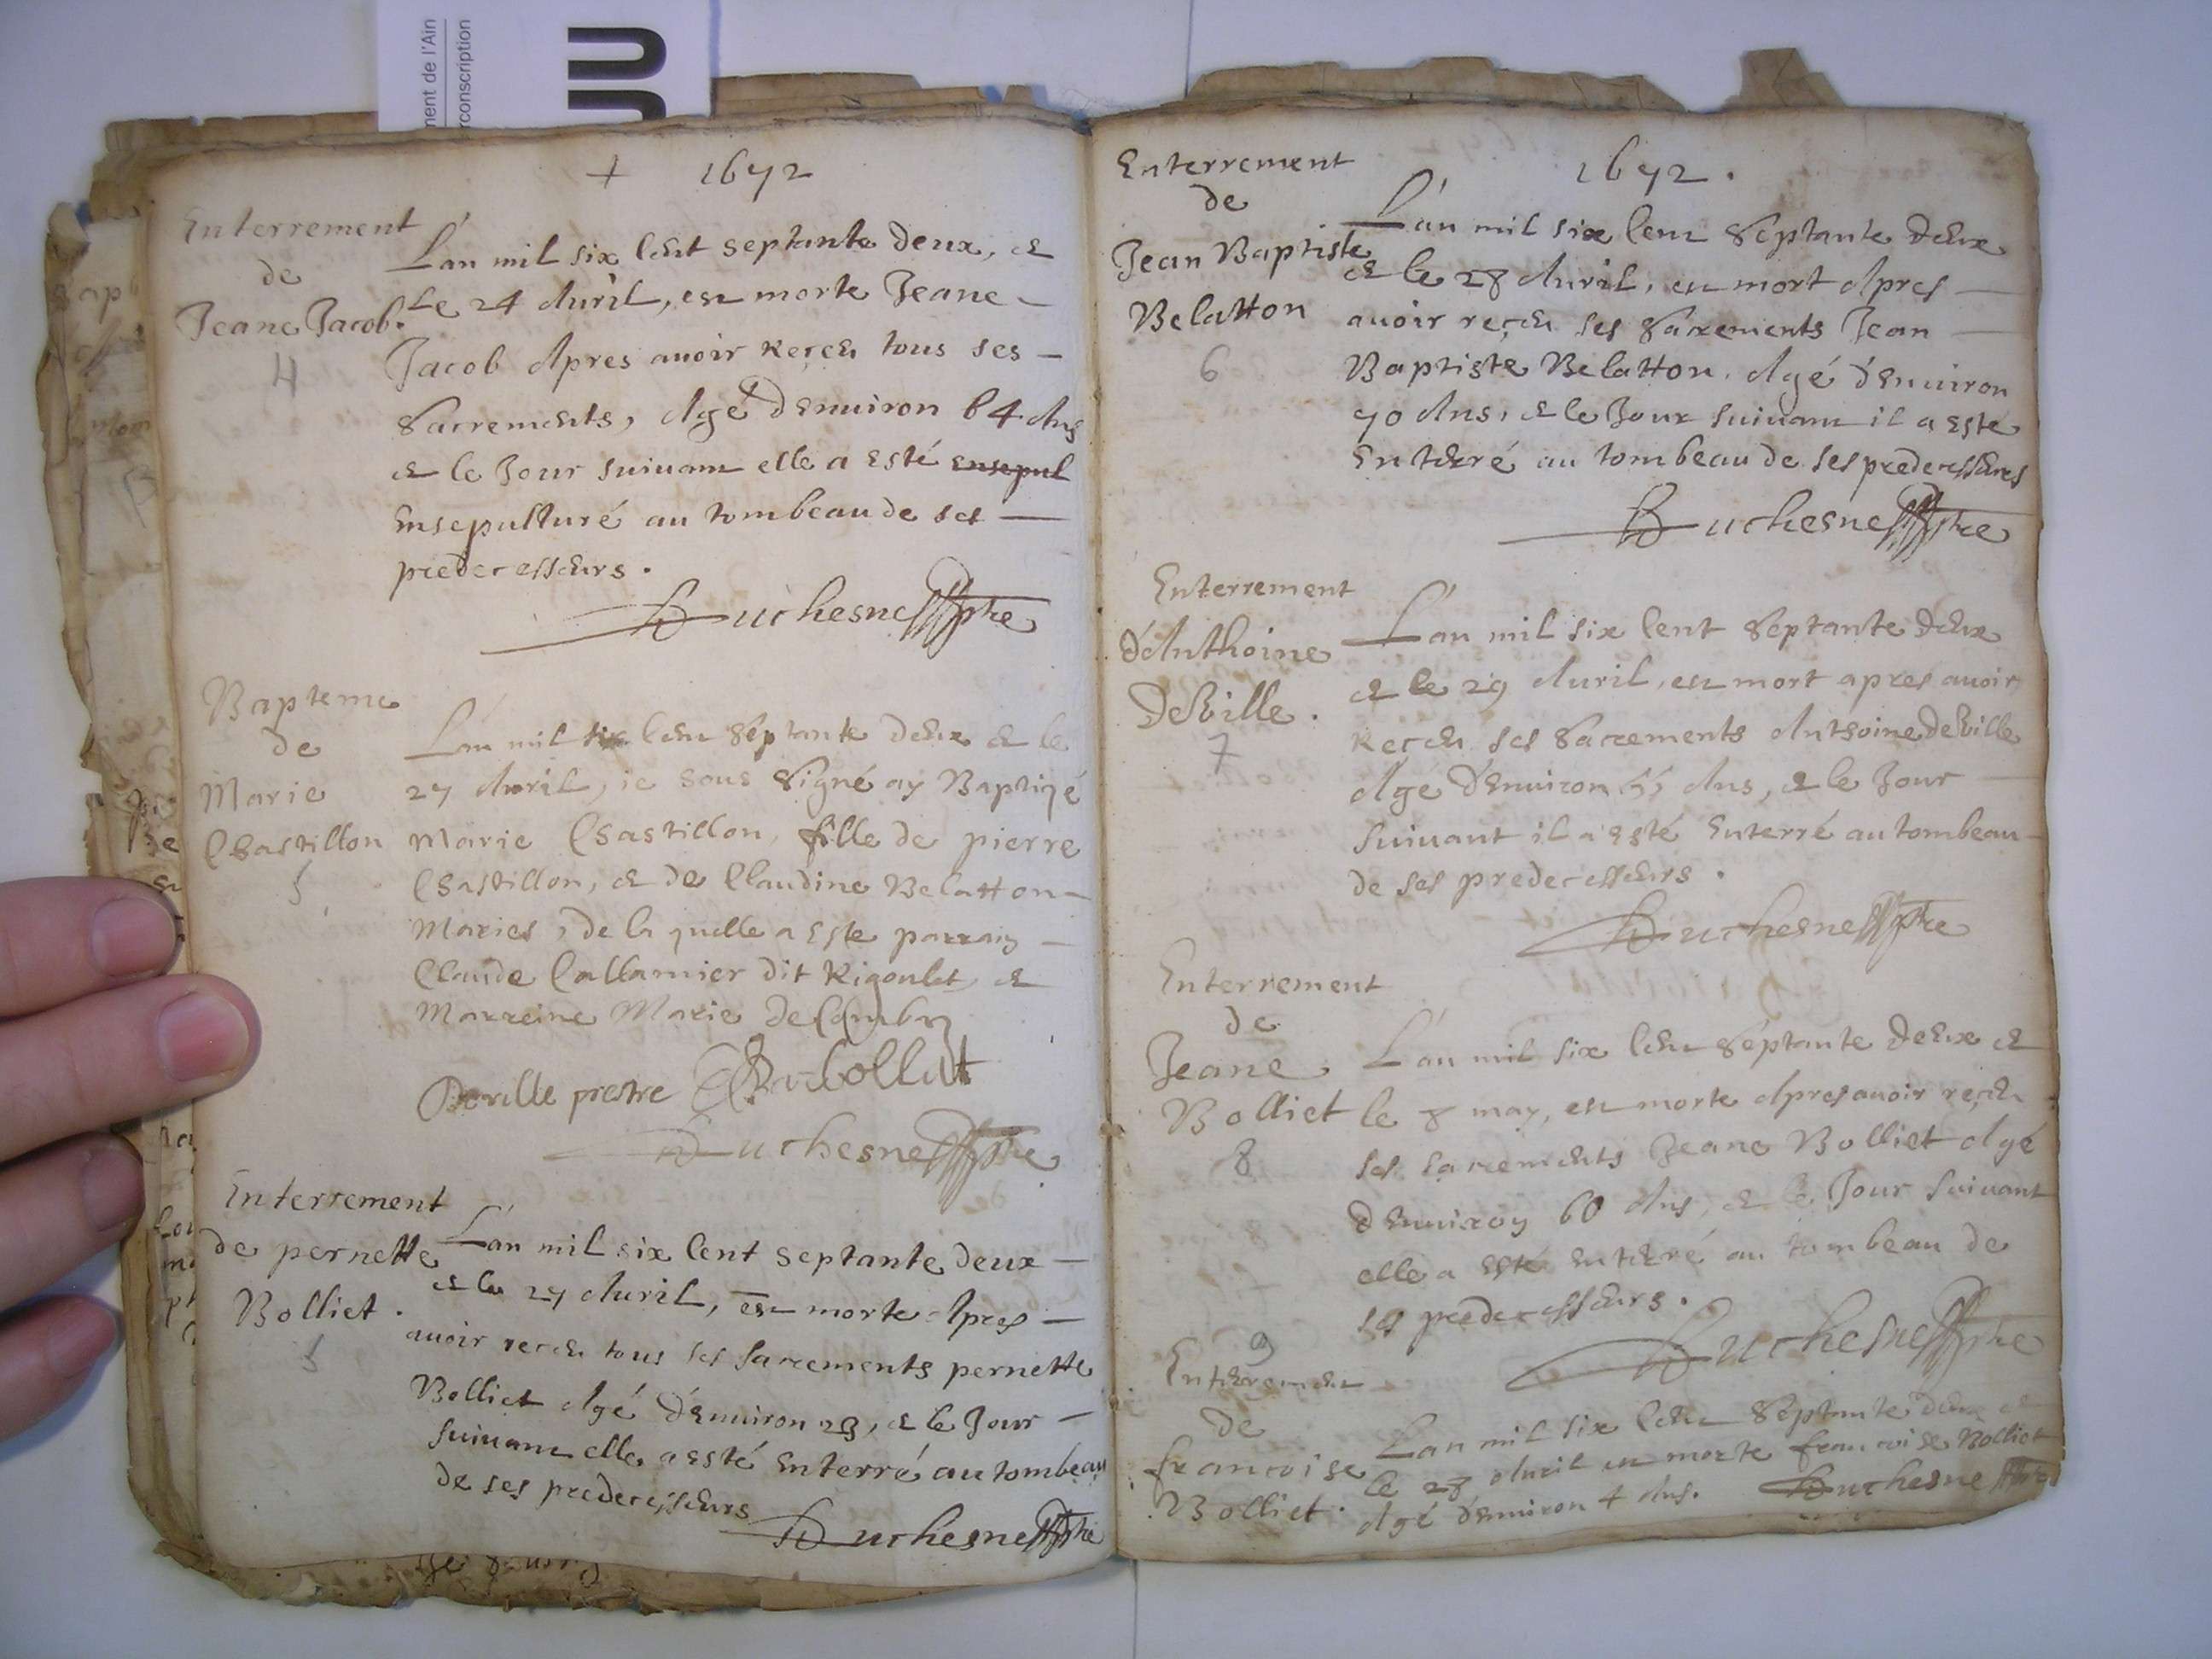 ment de l'Ain
rconscription
+ 1672
Enterrement
de
Jeane Jacob.
4
L'an mil six Cent septante deux, et
Le 24 Avril, est morte Jeane
Jacob Apres avoir Reçeu tous ses
Sacrements, Agé d'environ 64 Ans
et le Jour suivant elle a Esté ensepul
Ensepulturé au tombeau de ses
predecesseurs.
Duchesne ptre
Bapteme
de
Marie
Chastillon
5
L'an mil six Cent Septante deux et le
27 Avril, je sous Signé ay Baptizé
Marie Chastillon, fille de pierre
Chastillon, et de Claudine Belatton
Mariés, de la quelle a Este parrain
Claude Callamier dit Rigoulet et
Marreine Marie De Comby
Deville prestre
Duchesne ptre
Enterrement
de pernette
Bolliet.
5
L'an mil six Cent septante deux
et le 27 Avril, est morte Apres
avoir receu tous ses Sacrements pernette
Bolliet Agé d'environ 28, et le Jour
suivant elle a esté Enterré au tombeau
de ses predecesseurs
Duchesne ptre
1672.
Enterrement
de
Jean Baptiste
Belatton
6
L'an mil six Cent Septante deux
et le 28 Avril, est mort Apres
avoir reçeu ses Sacrements Jean
Baptiste Belatton, Agé d'Environ
70 Ans, et le Jour suivant il a Esté
Enterré au tombeau de ses predecesseurs
Duchesne ptre
Enterrement
d'Anthoine
DeVille.
7
L'an mil six Cent Septante deux
et le 29 Avril, est mort apres avoir
Receu ses Sacrements Anthoine DeVille
Agé d'Environ 55 Ans, et le Jour
suivant il a esté Enterré au tombeau
de ses predecesseurs.
Duchesne ptre
Enterrement
de
Jeane
Bolliet
8
L'an mil six Cent Septante deux et
le 8 may, est morte Apres avoir reçeu
ses Sacrements Jeane Bolliet Agé
d'Environ 60 Ans, et le Jour suivant
elle a Esté Enterré au tombeau de
ses predecesseurs.
Duchesne ptre
9
Enterrement
de
francoise
Bolliet.
L'an mil six Cent Septante deux et
le 28 Avril est morte francoise Bolliet
Agé d'Environ 4 Ans. Duchesne ptre